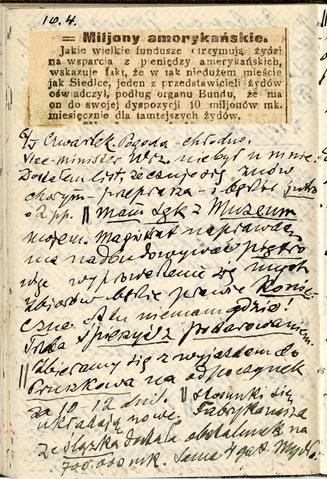 10.4.
= Miljony amorykańskie.
Jakie wielkie fundusze otrzymują żydzi
na wsparcia z pieniędzy amerykańskich,
wskazuje fakt, że w tak niedużem mieście
jak Siedlce, jeden z przedstawicieli żydów
oświadczył, podług organu Bundu, że ma
on do swojej dyspozycji 10 miljonów mk.
miesięcznie dla tamtejszych żydów.
Czwartek. Pogoda - chłodno.
Vice-minister nie był u mnie
Dostałem list, że czuje się znów
chorym - przeprasza - i będzie jutro
o 2 pp. || mam z Muzeum
mojem. Magistrat naprawdę
ma nadbudowywać piętro
więc wyprowadzenie się moich
zbiorów będzie prawie konie-
czne. A tu niemam gdzie!
Trzeba śpieszyć z podarowaniem.
|| Zbieramy się z wyjazdem do
Pruszkowa na odpoczynek
za 10 - 12 dni. || stosunki się
układają nowe. Fabryka nasza
ze Śląska dostała obstalunek na
700.000 mk.